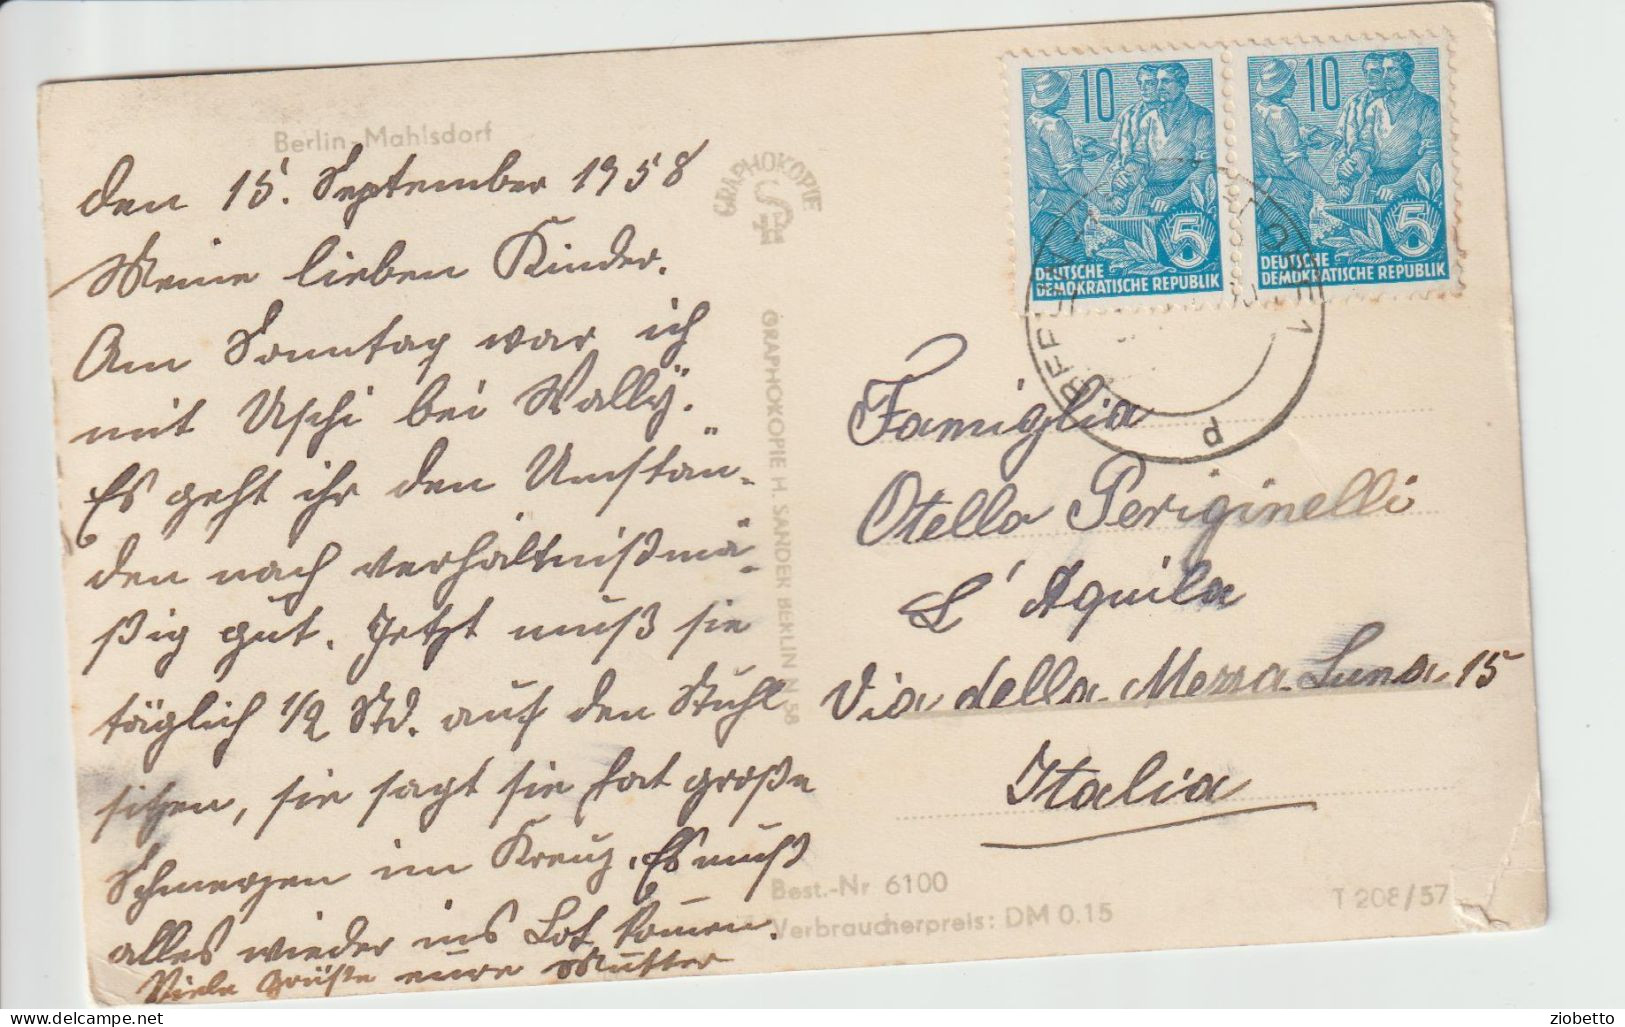 Berlin-Mahlsdorf
den 15. September 1958
Meine lieben Kinder.
Am Sonntag war ich
mit Uschi bei Wally.
Es geht ihr den Umstän-
den nach verhältnißmä-
ßig gut. Jetzt muß sie
täglich 1/2 Std. auf den Stuhl
sitzen, sie sagt sie hat große
Schmerzen im Kreuz. Es muß
alles wieder ins Lot kom̄en.
Viele Grüße eure Mutter
GRAPHOKOPIE
GRAPHOKOPIE H. SANDER BERLIN N 58
10
5
DEUTSCHE
DEMOKRATISCHE REPUBLIK
10
5
DEUTSCHE
DEMOKRATISCHE REPUBLIK
Famiglia
Otello Periginelli
L'Aquila
Via della Mezza Luna 15
Italia
Best.-Nr 6100
Verbraucherpreis: DM 0.15
T 208/57
delcampe.net
ziobetto